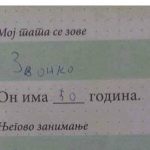 Мој тата се зове
Звонко
Он има 80 година.
Његово занимање